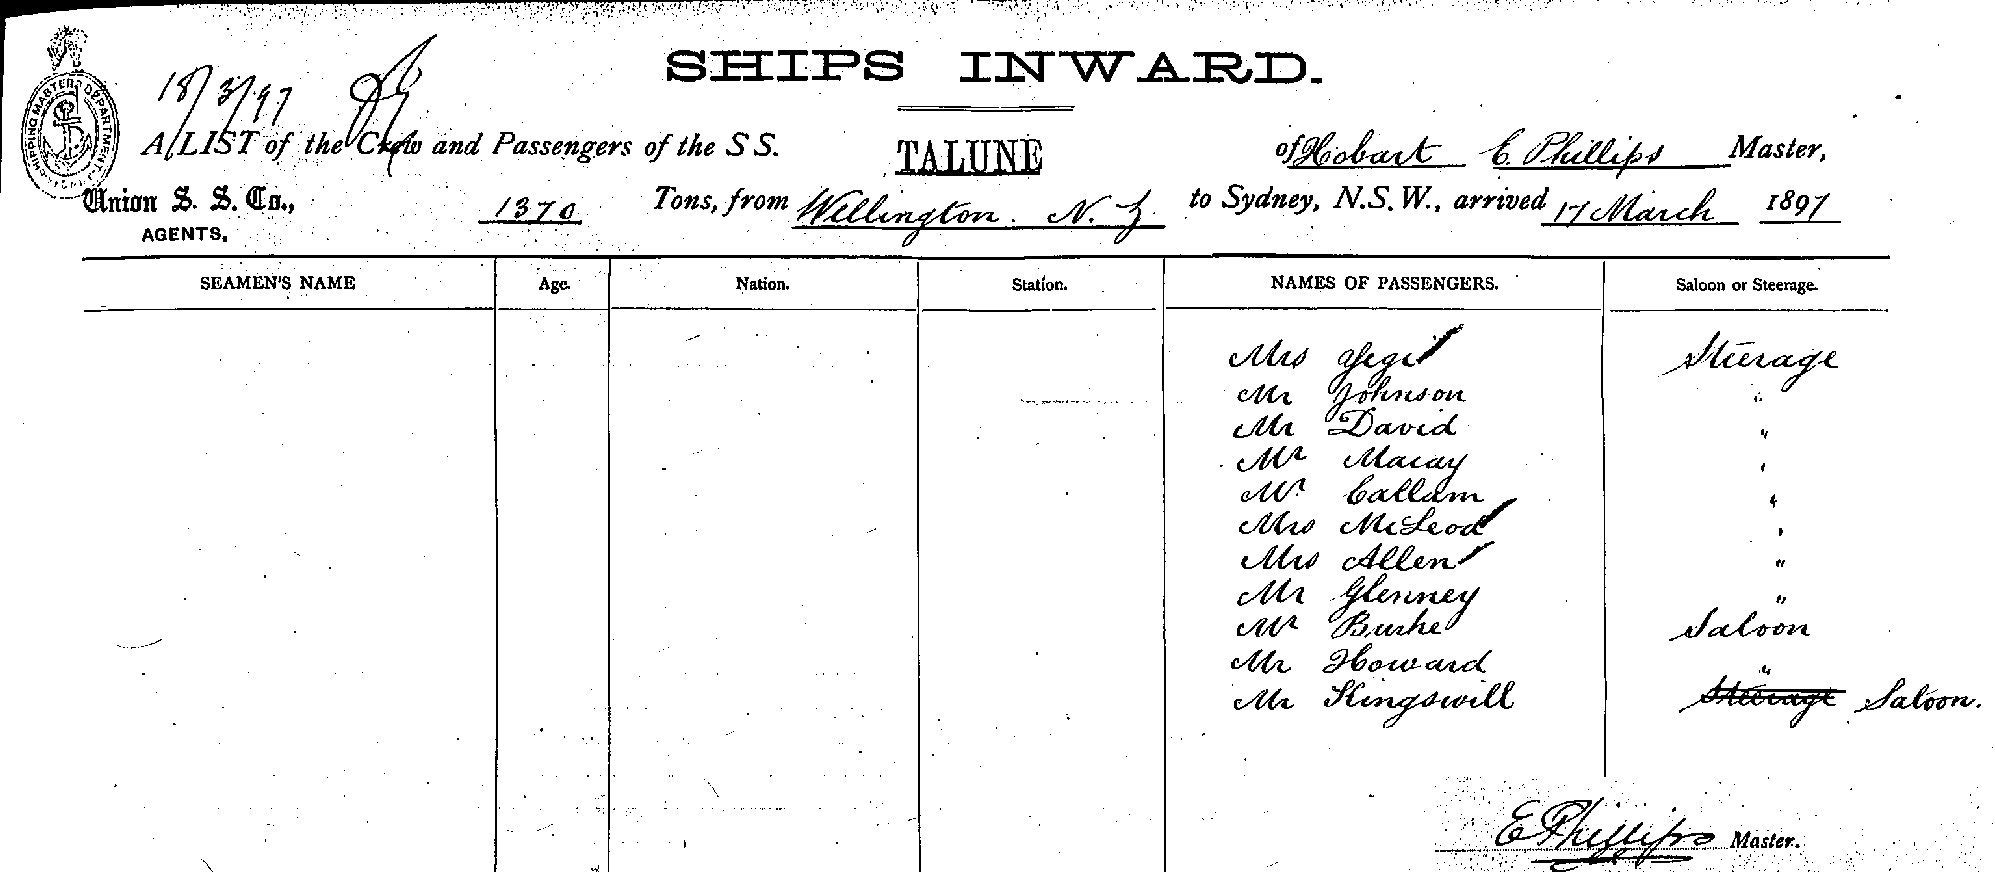 SHIPS INWARD.
18/3/97
A LIST of the Crew and Passengers of the S S. TALUNE of Hobart E Phillips Master,
Union S. S. Co., 1370 Tons, from Wellington. N. Z. to Sydney, N.S.W., arrived 17 March 1897
AGENTS,
SEAMEN'S NAME Age. Nation. Station. NAMES OF PASSENGERS. Saloon or Steerage.
Mrs Steerage
Mr Johnson "
Mr David "
Mr Macay "
Mr Callam "
Mrs McLeod "
Mrs Allen "
Mr Glenney "
Mr Burke Saloon
Mr Howard "
Mr Kingswill Steerage Saloon.
E Phillips Master.